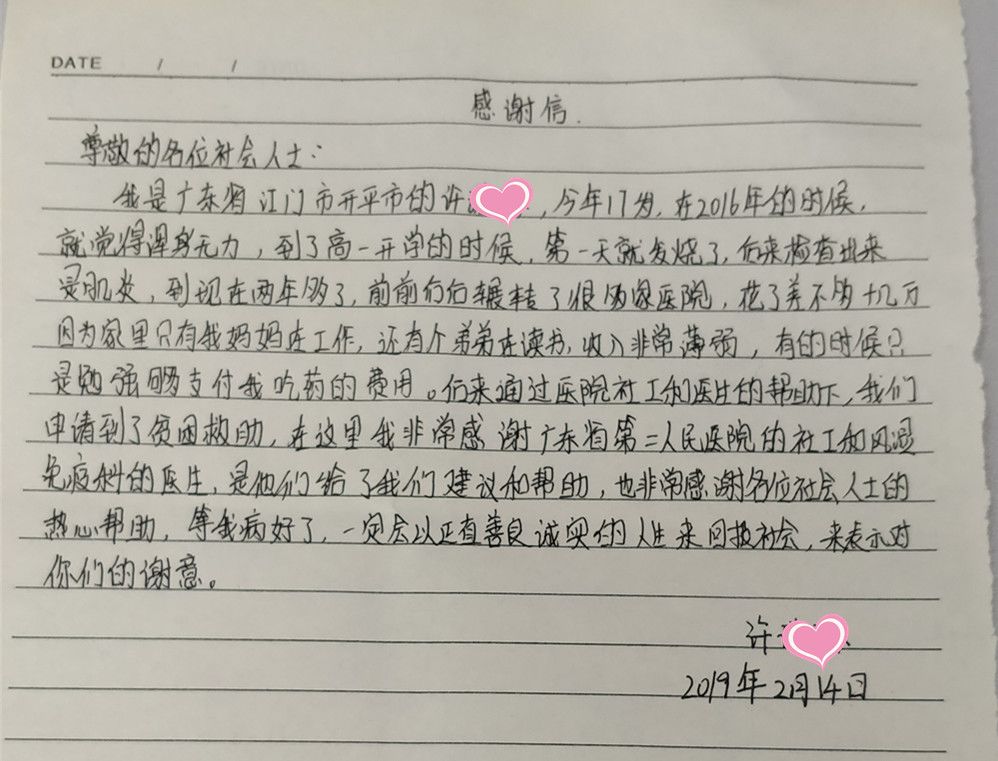 DATE / /
感谢信.
尊敬的各位社会人士：
我是广东省江门市开平市的许，今年17岁，在2016年的时候，
就觉得浑身无力，到了高一开学的时候，第一天就发烧了，后来检查出来
是肌炎，到现在两年多了，前前后后辗转了很多家医院，花了差不多十几万
因为家里只有我妈妈在工作，还有个弟弟在读书，收入非常薄弱，有的时候只
是勉强够支付我吃药的费用。后来通过医院社工和医生的帮助下，我们
申请到了贫困救助，在这里我非常感谢广东省第二人民医院的社工和风湿
免疫科的医生，是他们给了我们建议和帮助，也非常感谢各位社会人士的
热心帮助，等我病好了，一定会以正直善良诚实的人生来回报社会，来表示对
你们的谢意。
许
2019年2月14日